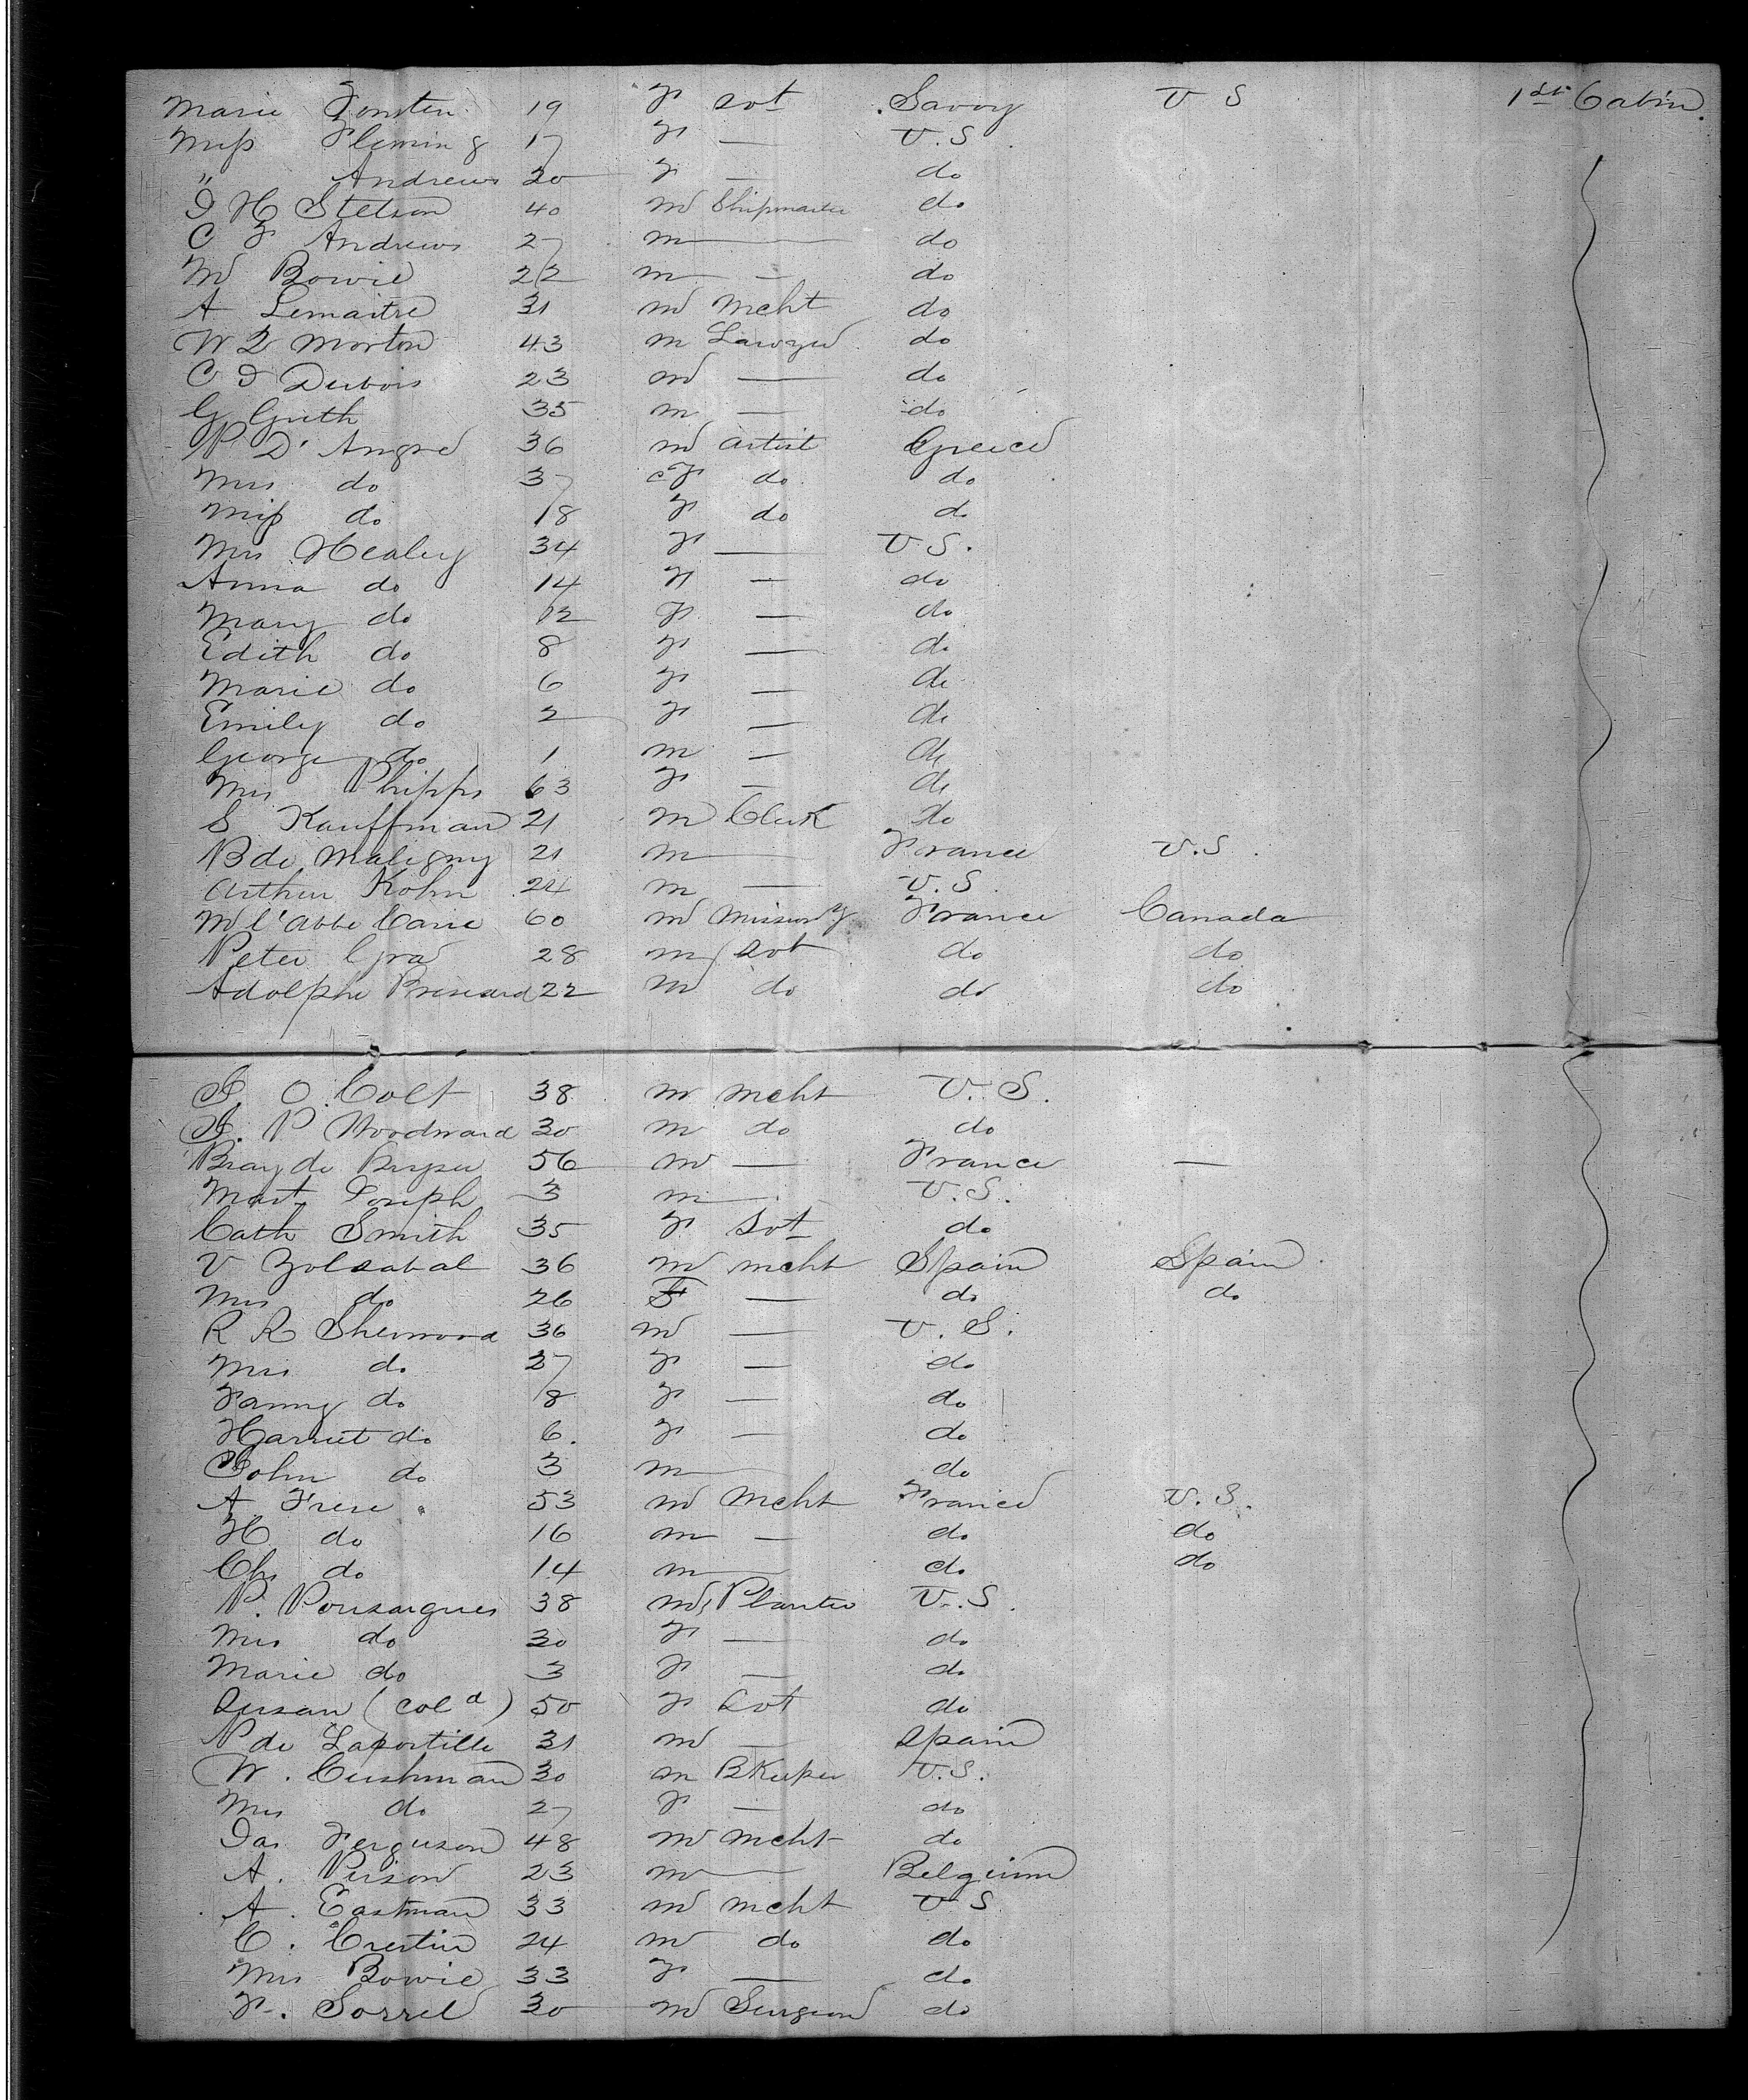 Marie 19 F Svt Savoy U S 1st Cabin
Miss Fleming 17 F — U.S
" Andrews 20 F — do
I H Stetson 40 M Shipmaster do
C F Andrews 27 M — do
M Bowie 22 M — do
A Lemaitre 31 M Mcht do
W Q Morton 43 M Lawyer do
C I Dubois 23 M — do
G Guth 35 M — do
P D' Angre 36 M artist Greece
Mrs do 37 F do do
Miss do 18 F do do
Mrs Healey 34 F — U S.
Anna do 14 F — do
Mary do 12 F — do
Edith do 8 F — do
Marie do 6 F — do
Emily do 2 F — do
George do 1 M — do
Mrs Phipps 63 F — do
S Kauffman 21 M Clerk do
B de Maligny 21 M — France U.S.
Arthur Kohn 24 M — U.S.
M l'Abbe Carie 60 M Missiony France Canada
Peter Gra 28 M Svt do do
Adolphe 22 M do do do
J. O. Colt 38 M Mcht U.S.
J. P Woodward 30 M do do
56 M — France —
Mast Joseph 3 M — U.S.
Cath Smith 35 F Svt do
V Zolsabal 36 M Mcht Spain Spain
Mrs do 26 F — do do
R R Sherwood 36 M — U.S.
Mrs do 27 F — do
Fanny do 8 F — do
Harriet do 6. F — do
John do 3 M — do
A Frere " 53 M Mcht France U.S.
H do 16 M — do do
Chs do 14 M — do do
P. Pousargues 38 M Planter U.S.
Mrs do 30 F — do
Marie do 3 F — do
Susan (Cold) 50 F Svt do
P de Laportille 31 M — Spain
W. Cushman 30 M BKeeper U.S.
Mrs do 27 F — do
Jas Ferguson 48 M Mcht do
A. Pirson 23 M — Belgium
A. Eastman 33 M Mcht U S
C. Crestin 24 M do do
Mrs Bowie 33 F — do
F. Sorrel 30 M Surgeon do